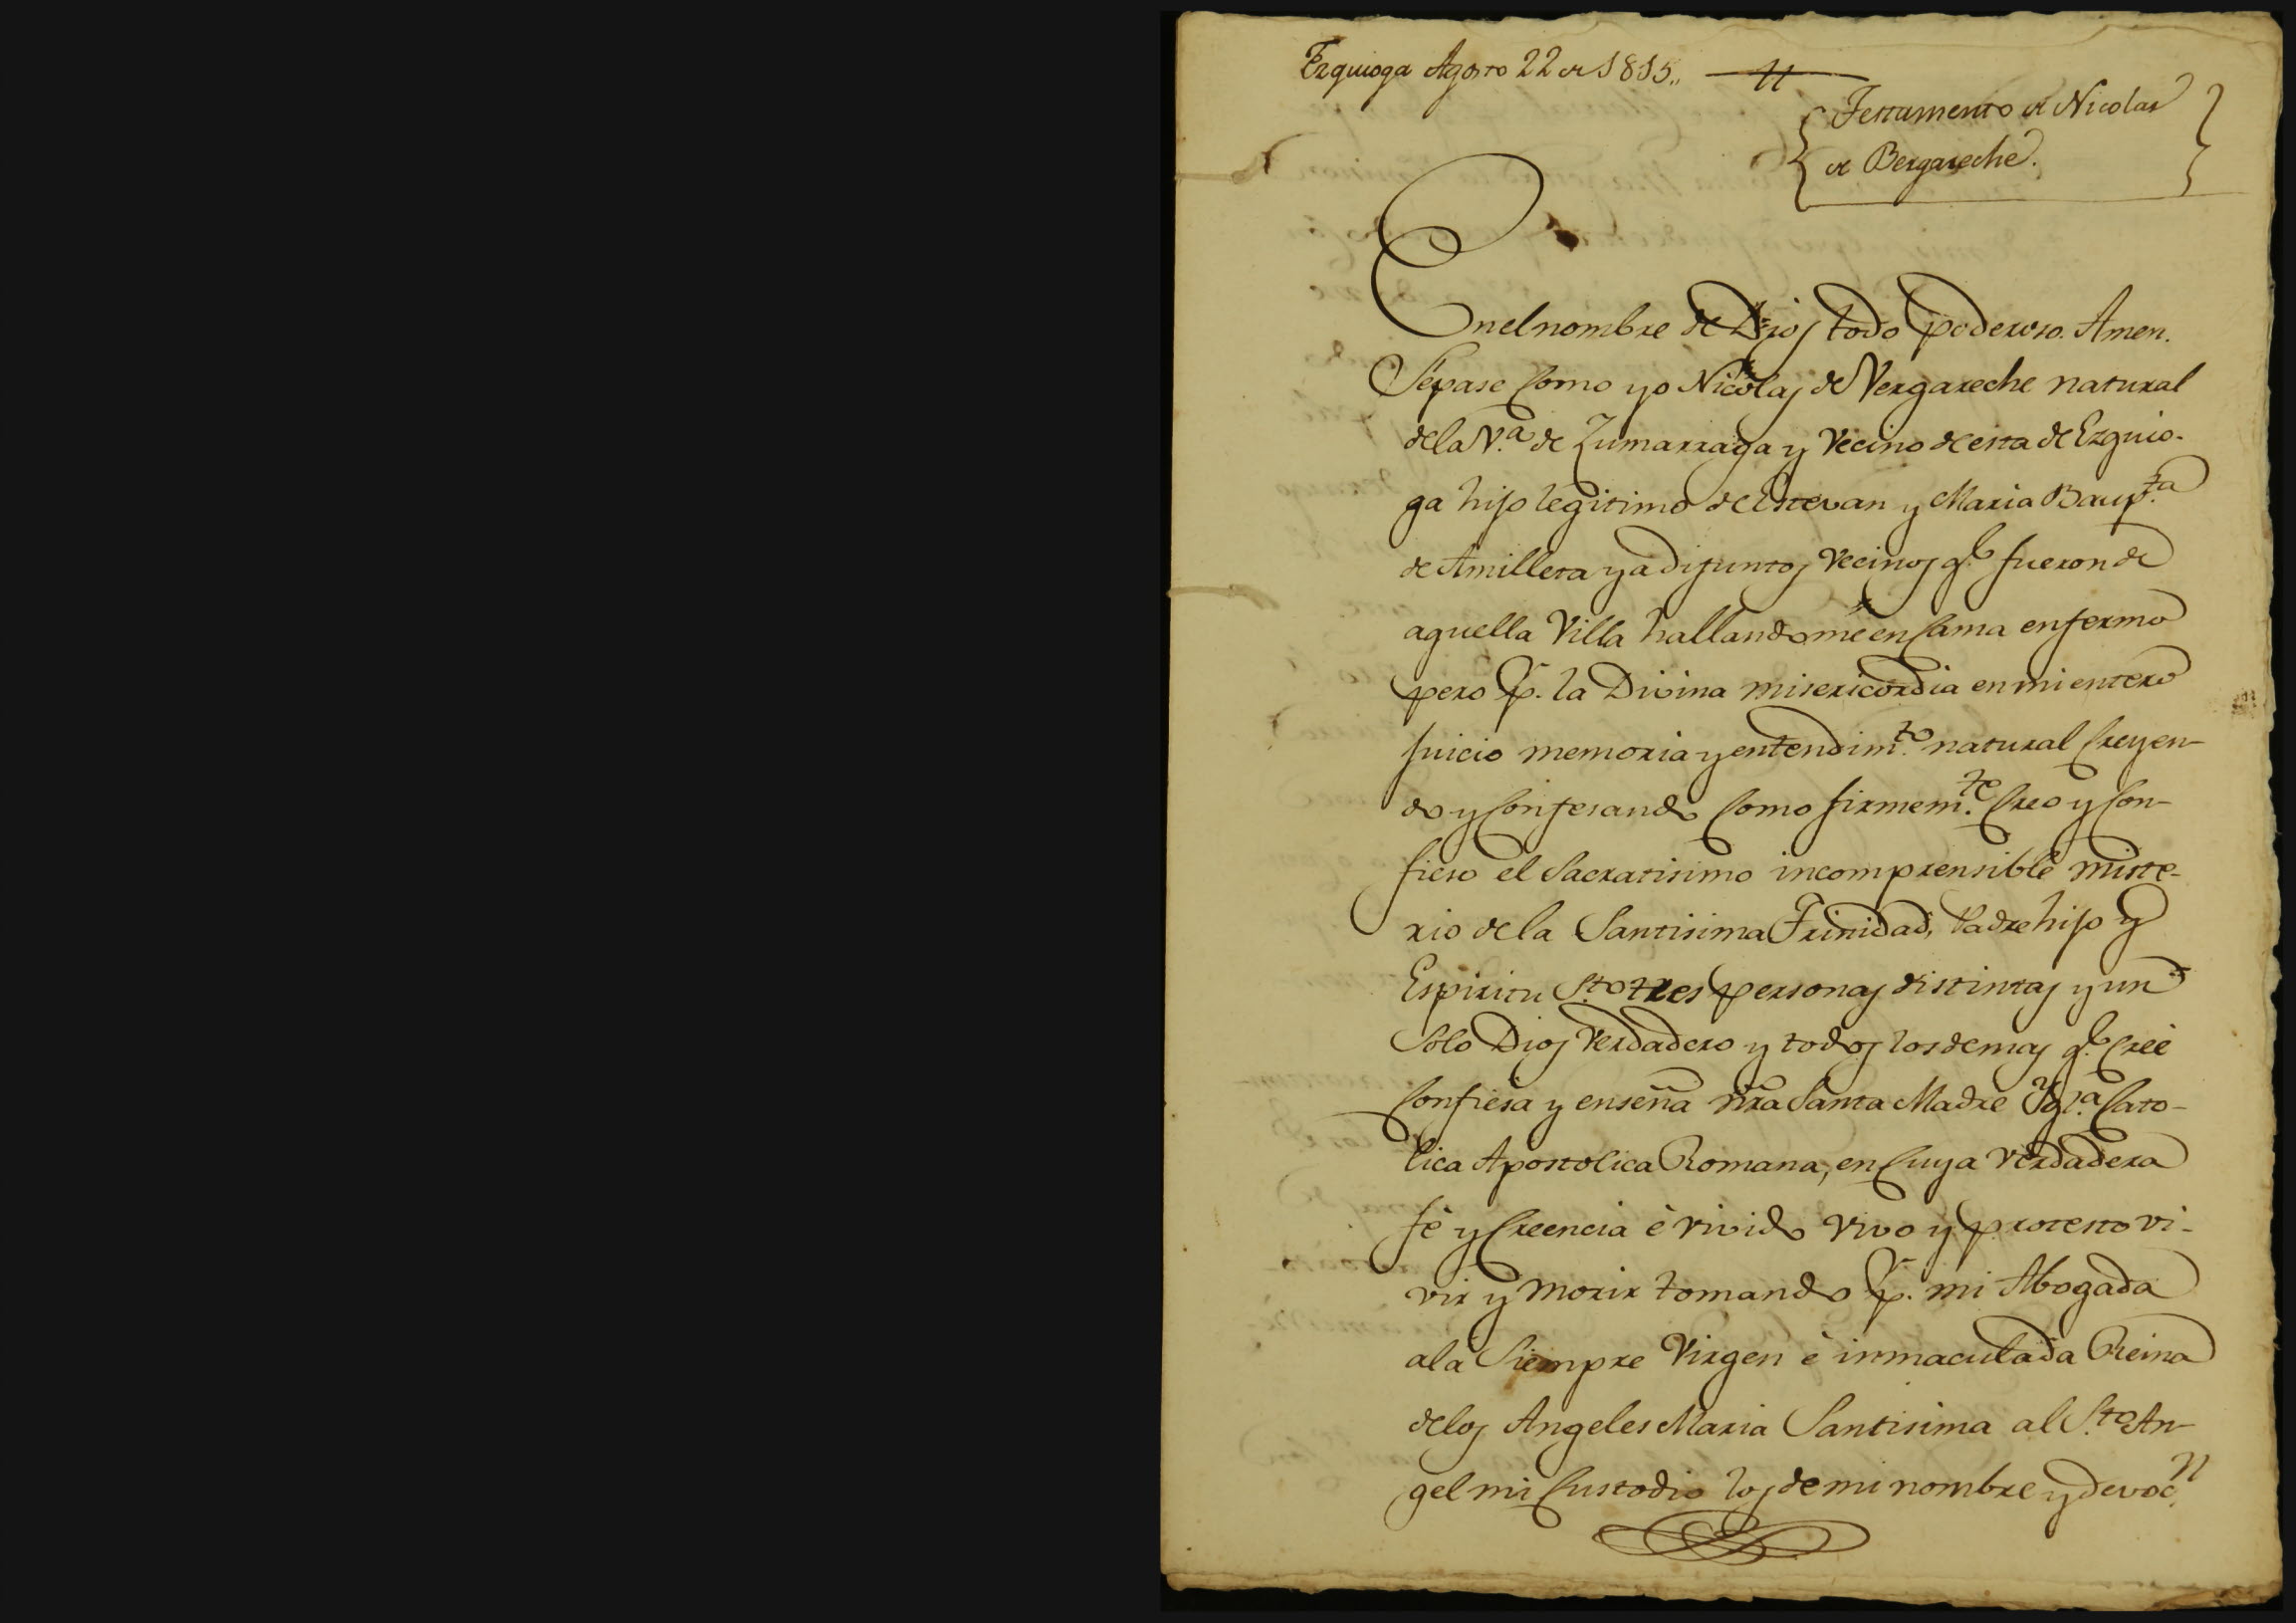 Ezquioga Agosto 22 de 1815,,
Testamento de Nicolas
de Bergareche.
En el nombre de Dios todo poderoso. Amen.
Sepase Como yo Nicolas de Vergareche natural
de la V.ª de Zumarraga y Vecino de esta de Ezquio-
ga hijo legitimo de Estevan y Maria Baup.ta
de Amilleta ya difuntos Vecinos q.e fueron de
aquella Villa hallandome en Cama enfermo
pero p.r la Divina misericordia en mi entero
Juicio memoria y entendim.to natural Creyen-
do y Confesando Como firmem.te Creo y Con-
fieso el Sacratisimo incomprensible miste-
rio de la Santisima Trinidad, Padre hijo y
Espiritu S.to tres personas distintas y un
Solo Dios Verdadero y todos los demas q.e Cree
Confiesa y enseña ñra Santa Madre Ygl.ª Cato-
lica Apostolica Romana, en Cuya Verdadera
fè y Creencia è vivido vivo y protesto vi-
vir y morir tomando p.r mi Abogada
ala Siempre Virgen è inmaculada Reina
delos Angeles Maria Santisima al S.to An-
gel mi Custodio los de mi nombre y devoc.n